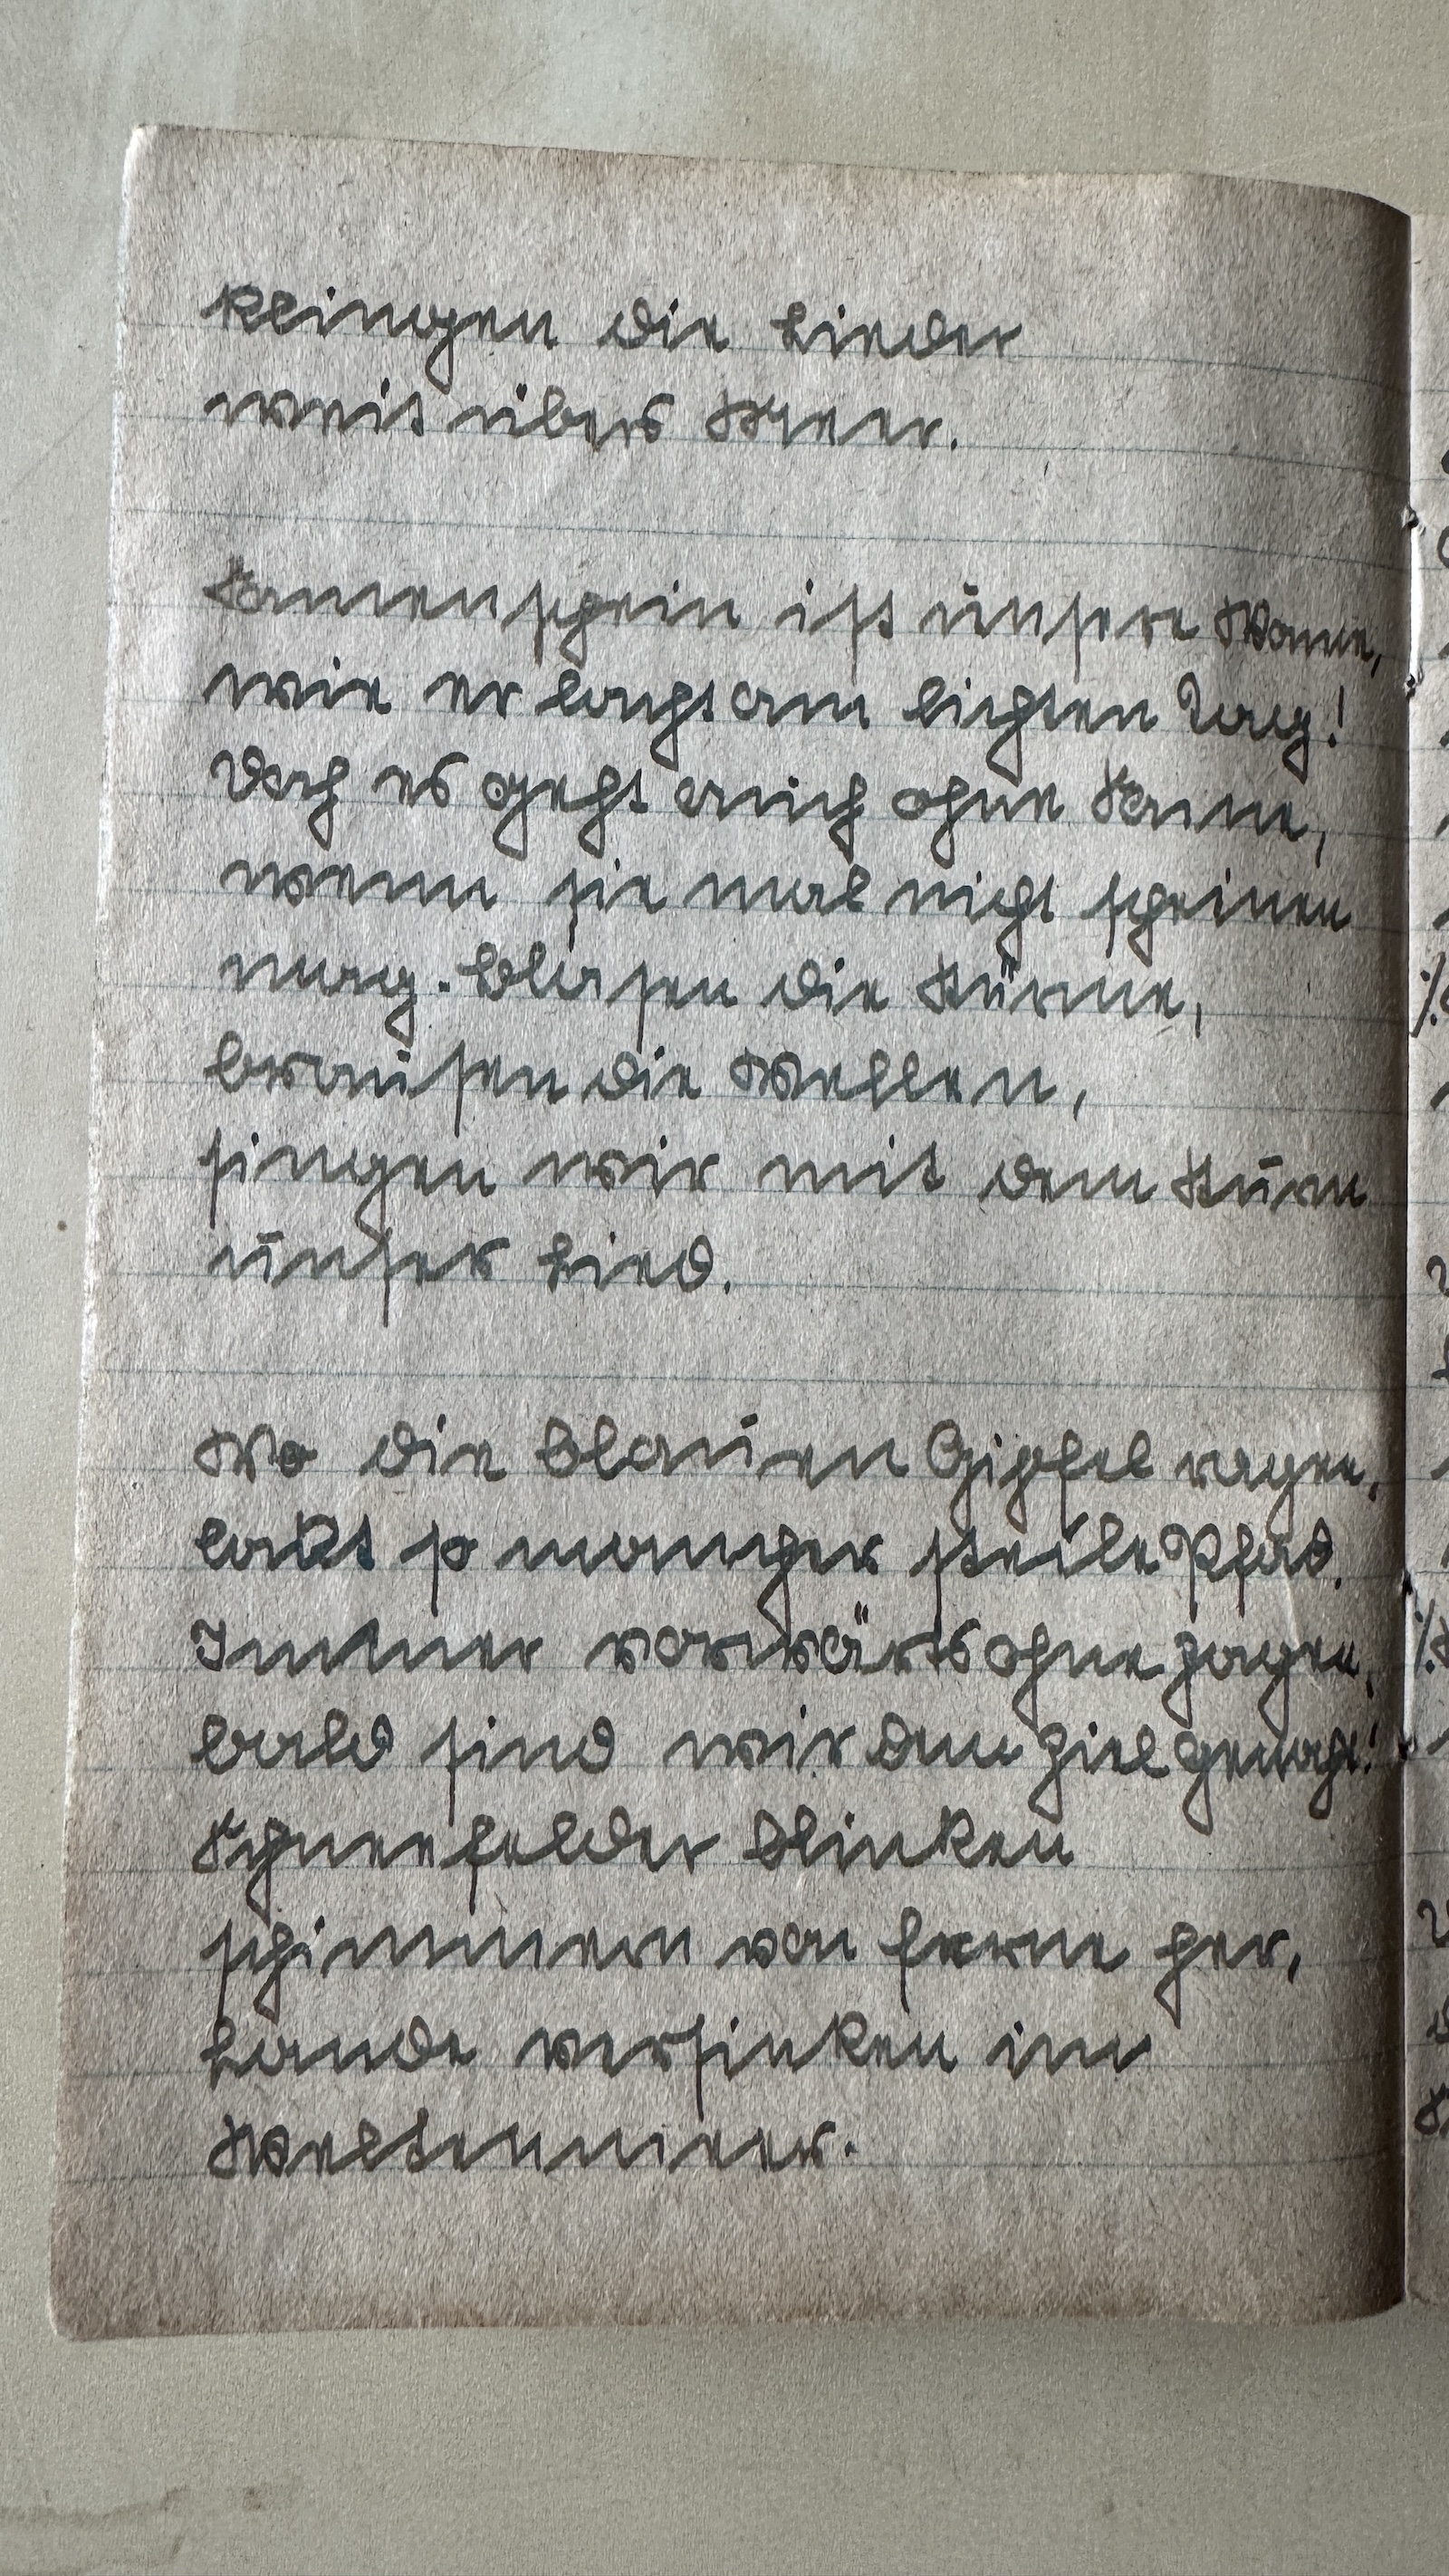 klingen die Lieder
weit übers Meer.
Sonnenschein ist unsere Wonne,
wie er lacht am lichten Tag!
Doch es geht auch ohne Sonne,
wenn sie mal nicht scheinen
mag. Blasen die Stürme,
brausen die Wellen,
singen wir mit dem Sturm
unser Lied.
Wo die blauen Gipfel ragen,
lockt so mancher steile Pfad.
Immer vorwärts ohne Zagen,
bald sind wir dem Ziel genaht!
Schneefelder blinken
schimmern von ferne her,
Lande versinken im
Weltenmeer.